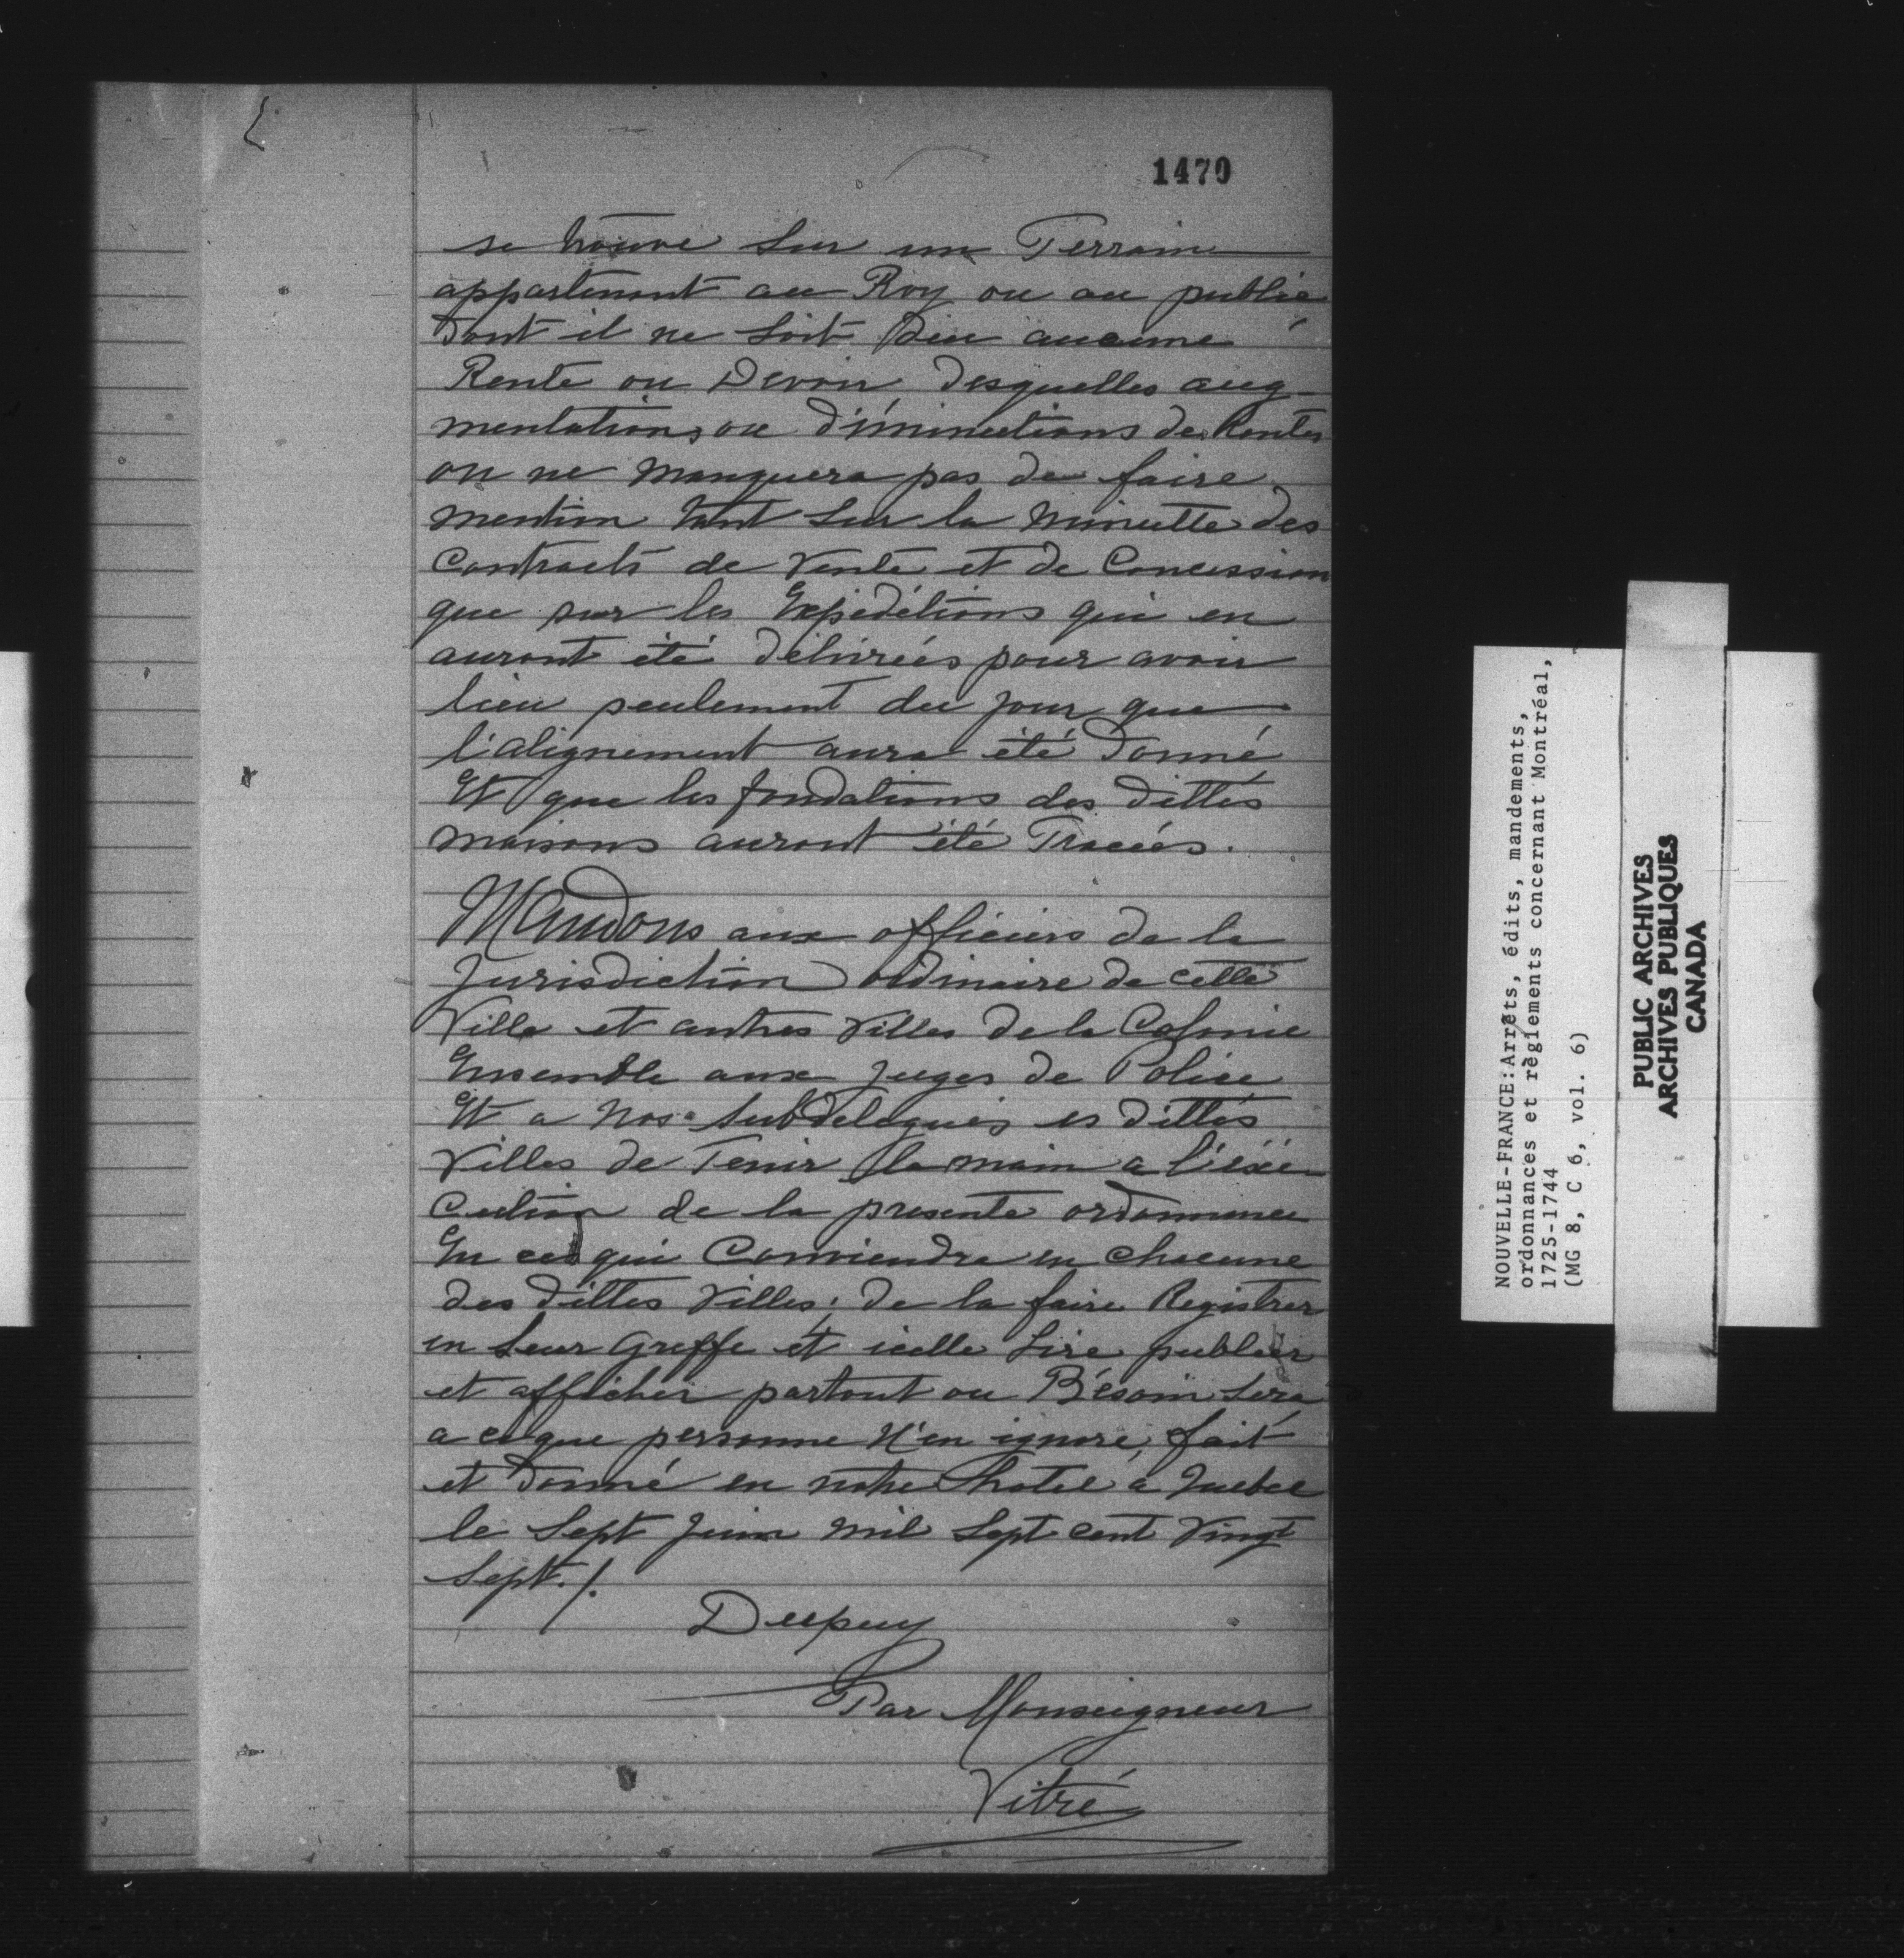 1470
se trouve sur un Terrain
appartenant au Roy ou au public
dont il ne soit deu aucune
Rente ou Devoir desquelles aug-
mentations ou diminutions de Rentes
on ne manquera pas de faire
mention tant sur la minutte des
Contracts de Vente et de Concession
que sur les Expéditions qui en
auront été délivrées pour avoir
lieu seulement du jour que
l'alignement aura été donné
Et que les fondations des dittes
maisons auront été Tracées.
Mandons aux officiers de la
Jurisdiction ordinaire de cette
Ville et autres Villes de la Colonie
Ensemble aux Juges de Police
Et a nos subdelegués es dittes
Villes de Tenir la main a l'éxé-
cution de la presente ordonnance
En ce qui Conviendra en chacune
des dittes Villes; de la faire Registrer
en leur greffe et icelle Lire publier
et afficher partout ou Bésoin sera
a ce que personne n'en ignore, fait
et donné en notre hotel à Quebec
le Sept Juin mil Sept cent Vingt
Sept./.
Dupuy
Par Monseigneur
Vitré
NOUVELLE-FRANCE:Arrêts, édits, mandements,
ordonnances et règlements concernant Montréal,
1725-1744
(MG 8, C 6, vol. 6)
PUBLIC ARCHIVES
ARCHIVES PUBLIQUES
CANADA